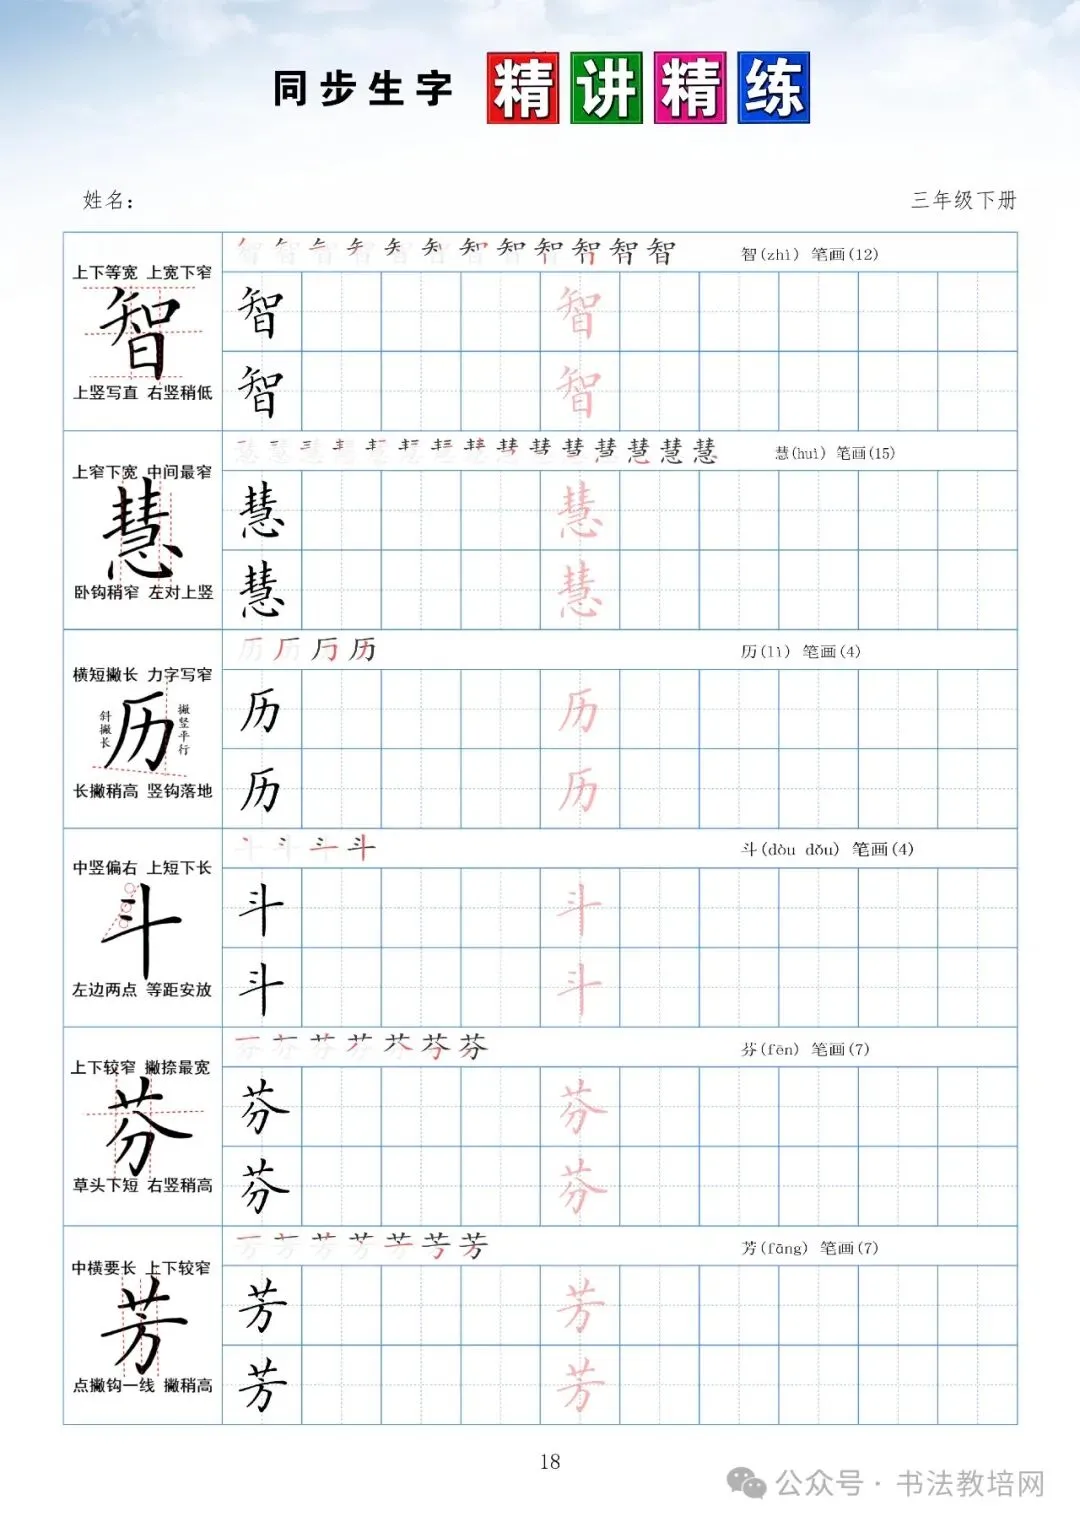 同步生字 精讲精练
姓名： 三年级下册
上下等宽 上宽下窄
智
上竖写直 右竖稍低
智(zhì) 笔画(12)
智 智
智 智
上窄下宽 中间最窄
慧
卧钩稍窄 左对上竖
慧(huì) 笔画(15)
慧 慧
慧 慧
横短撇长 力字写窄
斜撇长
历
撇竖平行
长撇稍高 竖钩落地
历(lì) 笔画(4)
历 历
历 历
中竖偏右 上短下长
斗
左边两点 等距安放
斗(dòu dǒu) 笔画(4)
斗 斗
斗 斗
上下较窄 撇捺最宽
芬
草头下短 右竖稍高
芬(fēn) 笔画(7)
芬 芬
芬 芬
中横要长 上下较窄
芳
点撇钩一线 撇稍高
芳(fāng) 笔画(7)
芳 芳
芳 芳
18
公众号·书法教培网